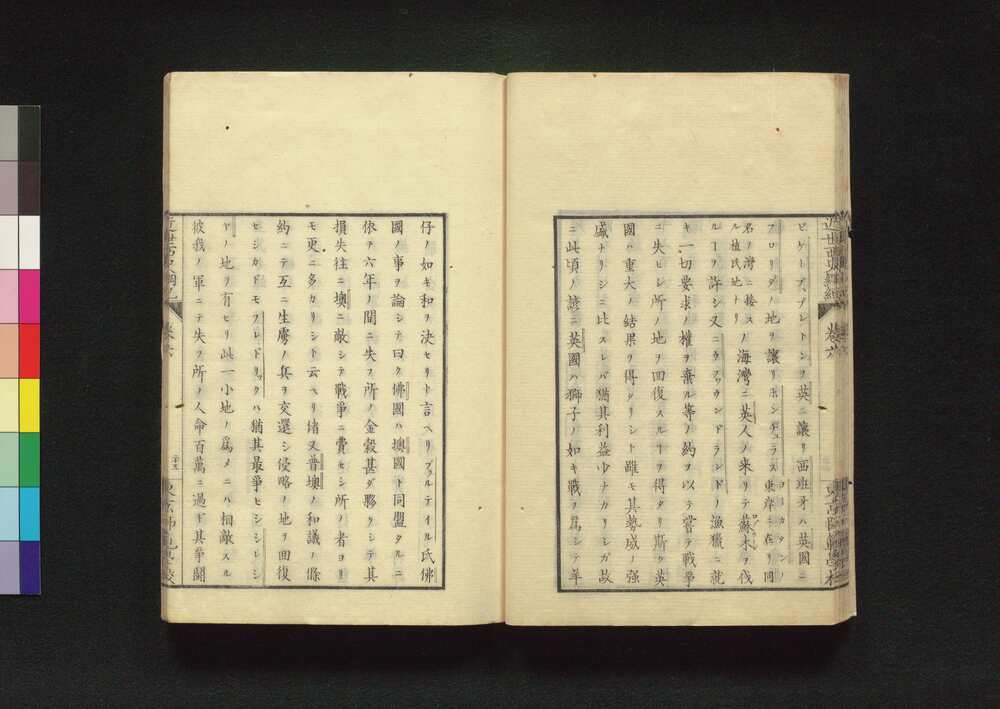 ビケートアプレトンヲ英ニ讓リ西班牙ハ英國ニ
フロリダノ地ヲ讓リホンヂュラス東岸ニ在リ同
名ノ灣ニ接ス
ル植民地ナリ
ノ海灣ニ英人ノ来リテ蘇木ヲ伐
ルヿヲ許シ又ニウファウンドランドノ漁獵ニ就
キ一切要求ノ權ヲ棄ル等ノ約ヲ以テ嘗テ戰爭
ニ失ヒシ所ノ地ヲ回復スルヿヲ得タリ斯ク英
國ハ重大ノ結果ヲ得タリシト雖モ其勢威ノ强
盛ナリシニ比スレバ猶其利益少ナカリシガ故
ニ此頃ノ諺ニ英國ハ獅子ノ如キ戰ヲ爲シテ羊
仔ノ如キ和ヲ決セリト言ヘリヴァルテイル氏佛
國ノ事ヲ論シテ曰ク佛國ハ墺國ト同盟タルニ
依テ六年ノ間ニ失フ所ノ金穀甚ダ夥クシテ其
損失往ニ墺ニ敵シテ戰爭ニ費セシ所ノ者ヨリ
モ更ニ多カリシト云ヘリ偖又普墺ノ和議ノ條
約ニテ互ニ生虜ノ兵ヲ交還シ侵略ノ地ヲ回復
セシカドモフレドリックハ猶其最爭ヒシシレシ
ヤノ地ヲ有セリ此一小地ノ爲メニハ相敵スル
彼我ノ軍ニテ失フ所ノ人命百萬ニ過ギ其爭鬪
近世西史綱紀
卷六